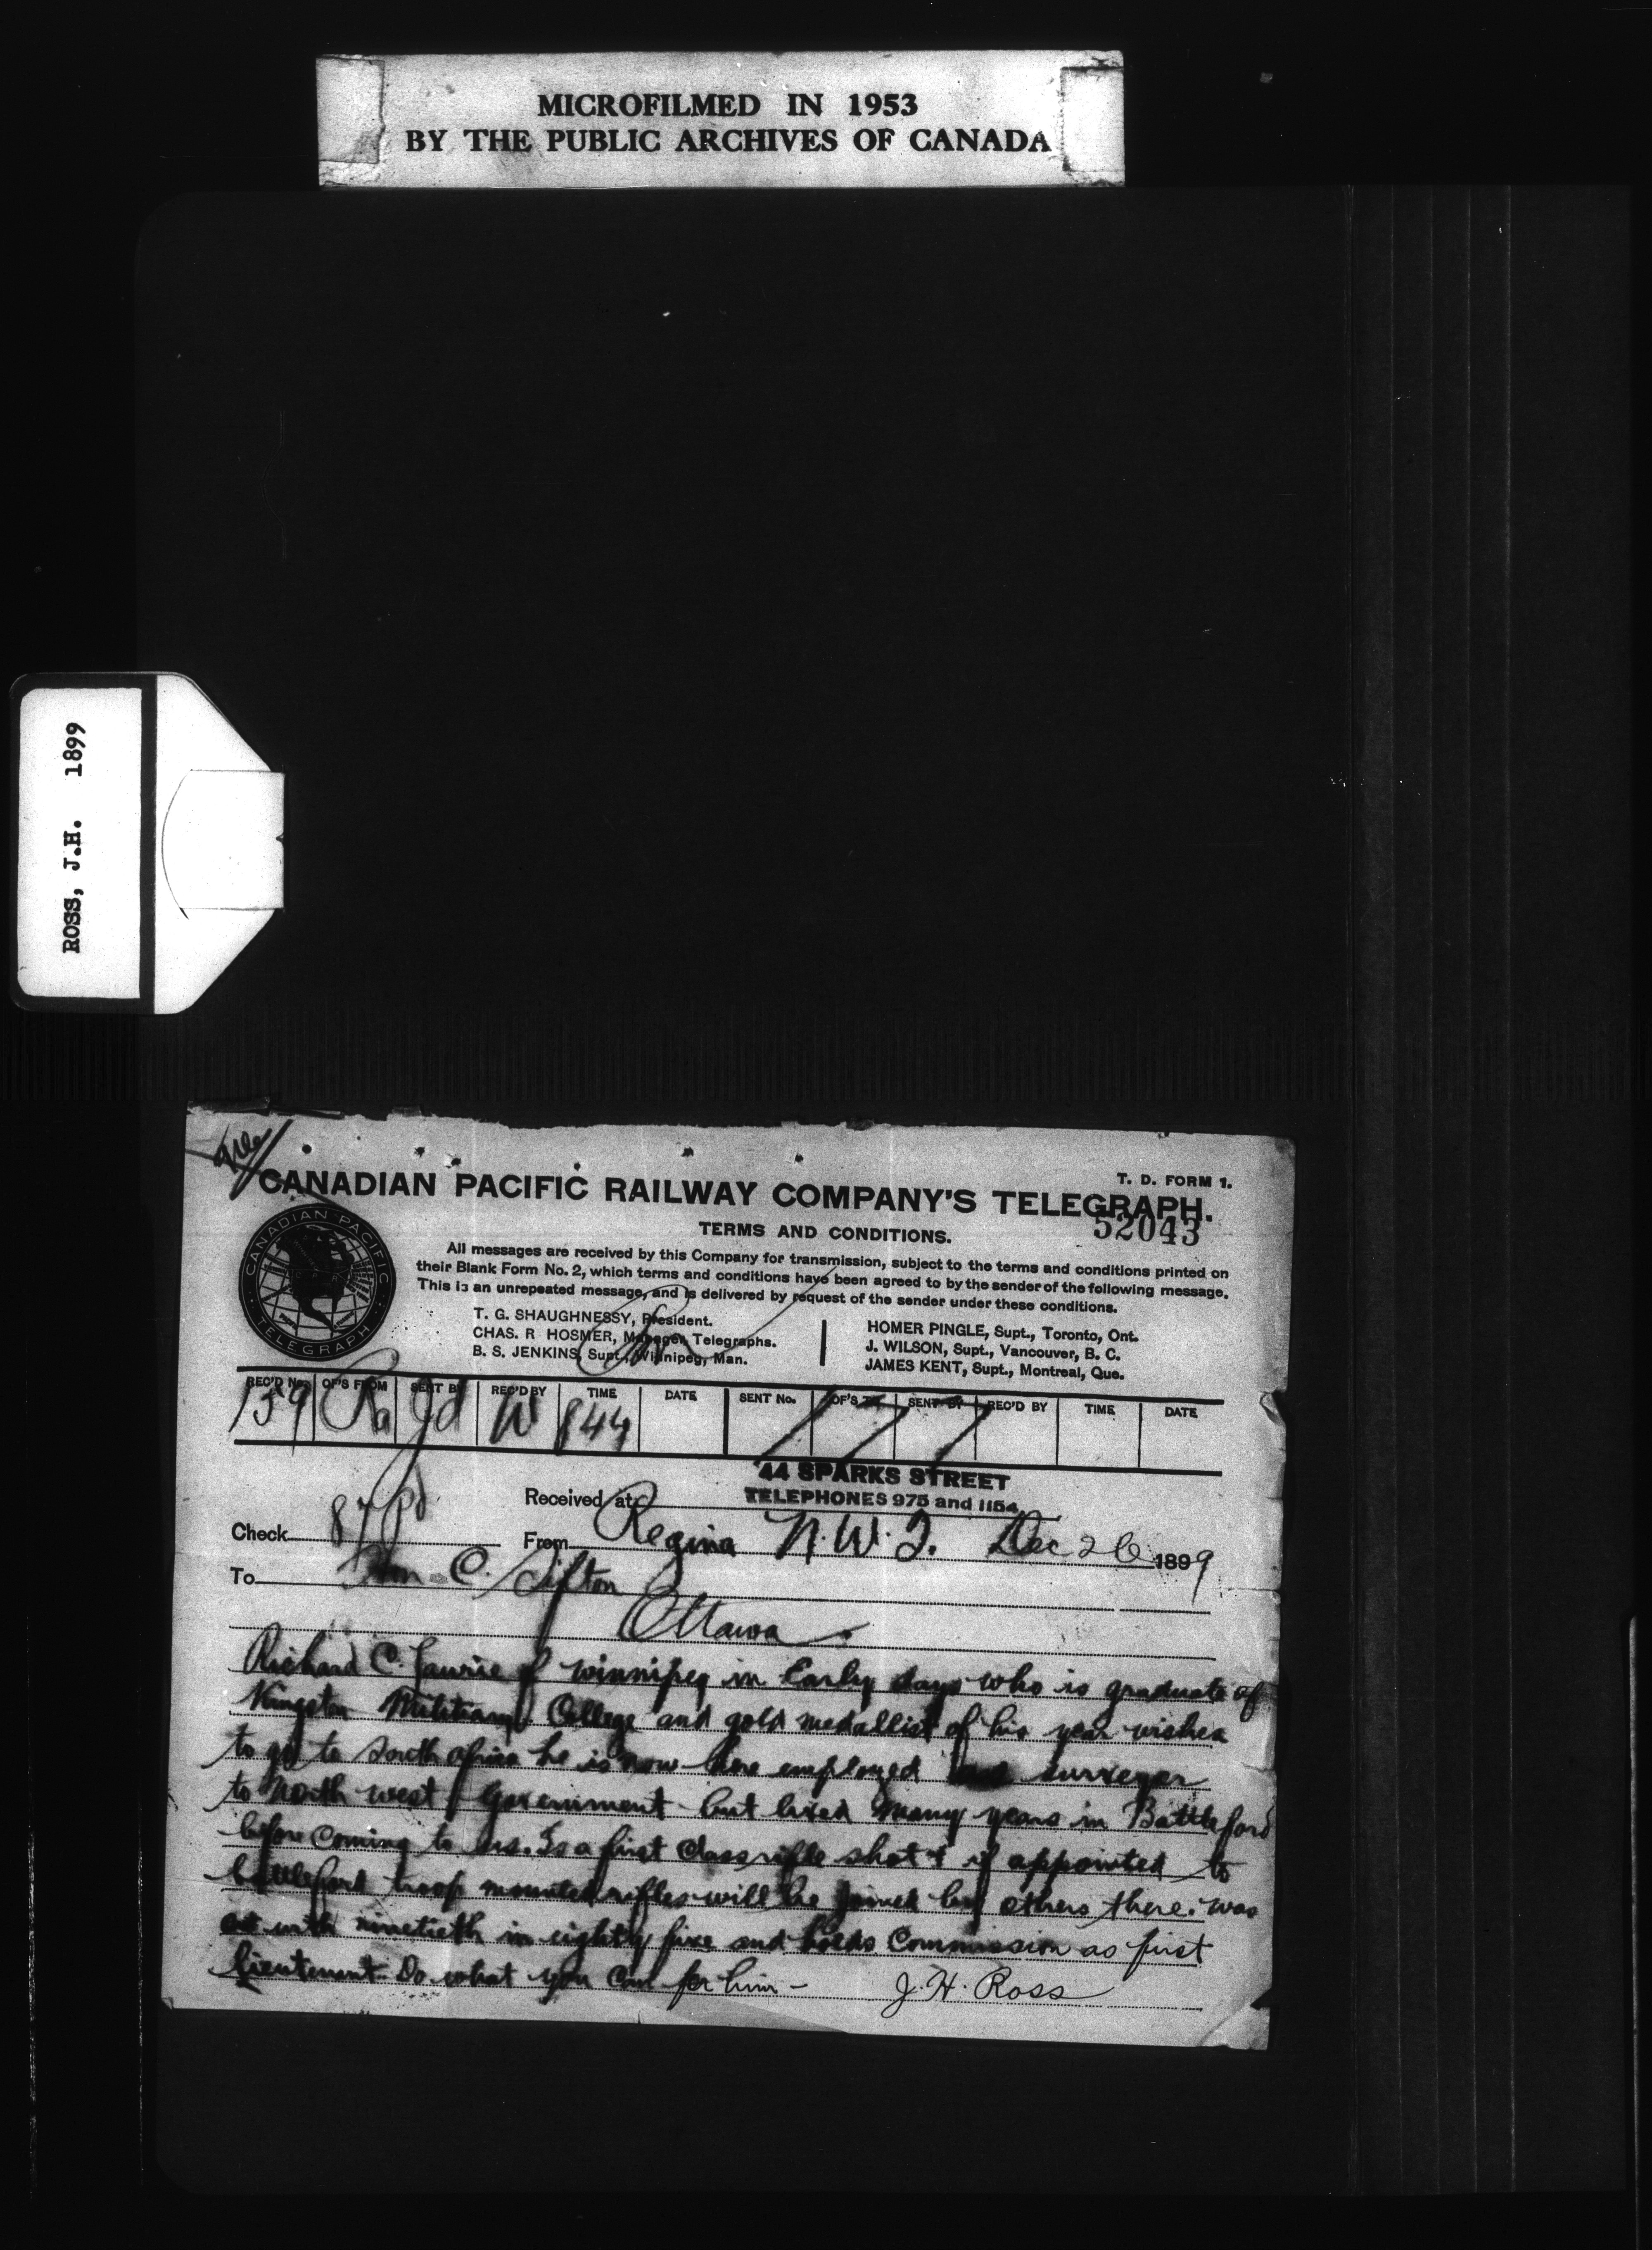 MICROFILMED IN 1953
BY THE PUBLIC ARCHIVES OF CANADA
ROSS, J.H. 1899
T. D. FORM 1.
CANADIAN PACIFIC RAILWAY COMPANY'S TELEGRAPH.
52043
TERMS AND CONDITIONS.
CANADIAN PACIFIC
TELEGRAPH
All messages are received by this Company for transmission, subject to the terms and conditions printed on
their Blank Form No. 2, which terms and conditions have been agreed to by the sender of the following message.
This is an unrepeated message, and is delivered by request of the sender under these conditions.
T. G. SHAUGHNESSY, President.
CHAS. R HOSMER, Manager Telegraphs.
B. S. JENKINS, Supt., Winnipeg, Man.
HOMER PINGLE, Supt., Toronto, Ont.
J. WILSON, Supt., Vancouver, B. C.
JAMES KENT, Supt., Montreal, Que.
REC'D No. OF'S FROM SENT BY REC'D BY TIME DATE SENT No. OF'S TO SENT BY REC'D BY TIME DATE
159 Ra Jd W 844
44 SPARKS STREET
TELEPHONES 975 and 1154
Received at
Check 87 Pd
From Regina N.W.T. Dec 26 1899
To Hon. C. Sifton
Ottawa.
Richard C. Laurie of Winnipeg in Early days who is graduate of
Kingston Military College and gold medallist of his year wishes
to go to South africa he is now here employed as surveyor
to North west Government but lived many years in Battleford
before coming to us. Is a first Class rifle shot & if appointed to
battleford troop mounted rifles will be joined by others there. was
out with ninetieth in eighty five and holds Commission as first
lieutenant. Do what you Can for him - J. H. Ross